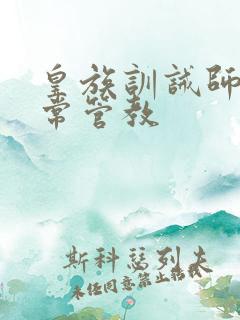 皇族訓誡師
常管教
斯科瑟列夫
未经同意禁止转载